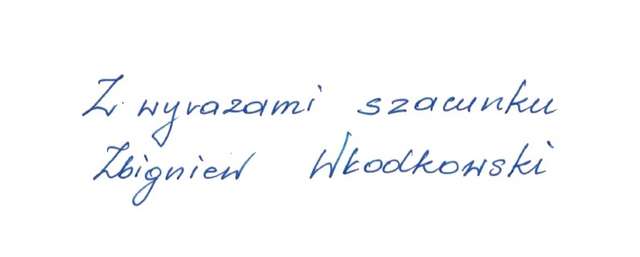 Z wyrazami szacunku
Zbigniew Włodkowski